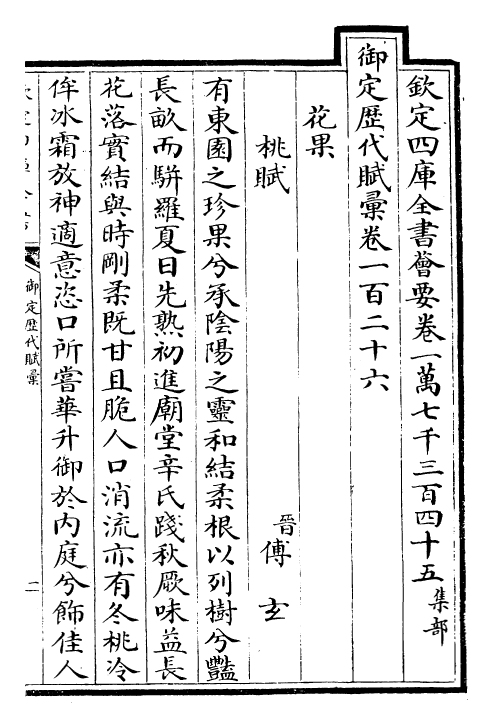 欽定四庫全書薈要卷一萬七千三百四十五 集部
御定歷代賦彙卷一百二十六
花果
桃賦 晉傅玄
有東園之珍果兮承陰陽之靈和結柔根以列樹兮豔
長畝而駢羅夏日先熟初進廟堂辛氏踐秋厥味益長
花落實結與時剛柔既甘且脆入口消流亦有冬桃冷
侔冰霜放神適意恣口所嘗華升御於內庭兮飾佳人
御定歷代賦彙